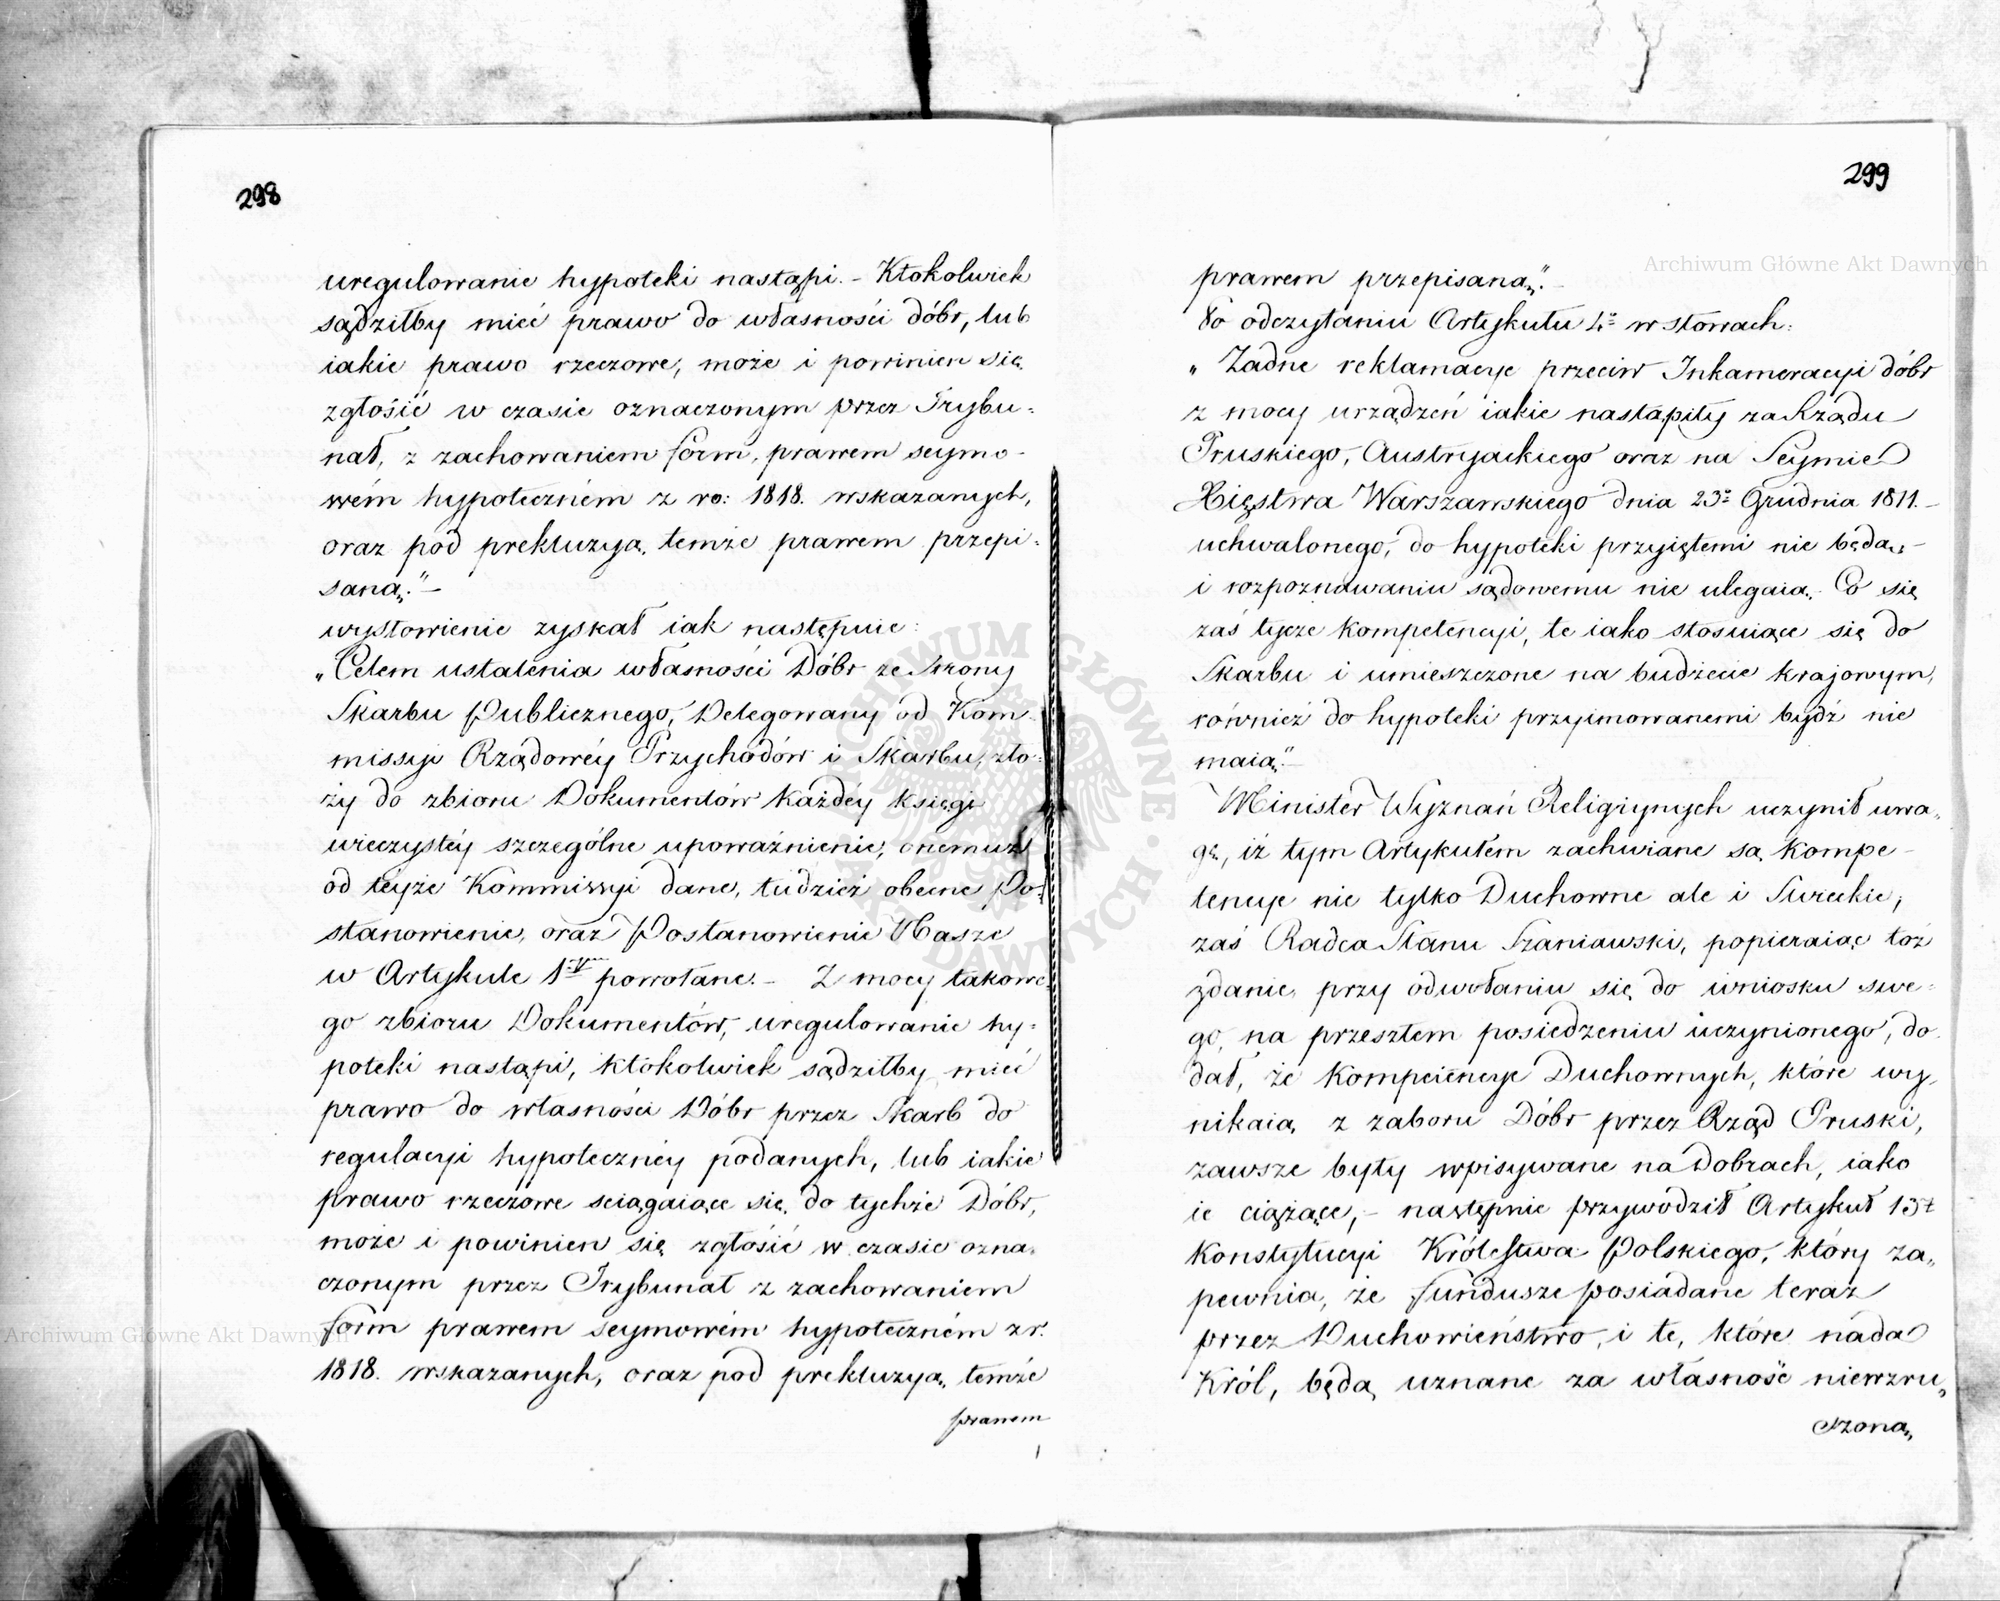 298
uregulowanie hypoteki nastąpi. – Ktokolwiek
sądziłby mieć prawo do własności dóbr, lub
iakie prawo rzeczowe, może i powinien się
zgłosić w czasie oznaczonym przez Trybu:
nał, z zachowaniem form, prawem seymo-
wém hypoteczném z ro: 1818. wskazanych,
oraz pod prekluzyą, temże prawem przepi:
saną." –
wysłowienie zyskał iak następuie:
„Celem ustalenia własności Dóbr ze strony
Skarbu Publicznego, Delegowany od Kom
missyi Rządowéy Przychodów i Skarbu, zło:
ży do zbioru Dokumentów każdéy księgi
wieczystéy szczególne upoważnienie, onemuż
od teyże Kommissyi dane, tudzież obecne Po:
stanowienie, oraz Postanowienie Nasze
w Artykule 1ym powołane. – Z mocy takowe:
go zbioru Dokumentów, uregulowanie hy:
poteki nastąpi, ktokolwiek sądziłby mieć
prawo do własności Dóbr przez Skarb do
regulacyi hypotecznéy podanych, lub iakie
prawo rzeczowe sciągaiące się do tychże Dóbr,
może i powinien się zgłosić w czasie ozna:
czonym przez Trybunał z zachowaniem
form prawem seymowém hypoteczném z r.
1818. wskazanych, oraz pod prekluzyą, temże
prawem
299
prawem przepisaną." –
Po odczytaniu Artykułu 4o w słowach:
„Żadne reklamacye przeciw Inkameracyi dóbr
z mocy urządzeń iakie nastąpiły za Rządu
Pruskiego, Austryackiego oraz na Seymie
Xięstwa Warszawskiego dnia 23o Grudnia 1811. –
uchwalonego, do hypoteki przyiętemi nie będą, –
i rozpoznawaniu sądowemu nie ulegaią. Co się
zaś tycze kompetencyi, te iako stosuiące się do
Skarbu i umieszczone na budżecie krajowym,
również do hypoteki przyimowanemi bydź nie
maią." –
Minister Wyznań Religiynych uczynił uwa„
gę, iż tym Artykułem zachwiane są kompe-
tencye nie tylko Duchowne ale i Swieckie,
zaś Radca Stanu Szaniawski, popieraiąc toż
zdanie, przy odwołaniu się do wniosku swe:
go, na przeszłem posiedzeniu uczynionego, do
dał, że kompetencye Duchownych, które wy„
nikaią z zaboru Dóbr przez Rząd Pruski,
zawsze były wpisywane na Dobrach, iako
ie ciążące, – następnie przywodził Artykuł 13t
Konstytucyi Królestwa Polskiego, który za„
pewnia, że fundusze posiadane teraz
przez Duchowieństwo, i te, które nada
Król, będą uznane za własność niewzru„
szoną,
Archiwum Główne Akt Dawnych
Archiwum Główne Akt Dawnych
ARCHIWUM GŁÓWNE AKT DAWNYCH